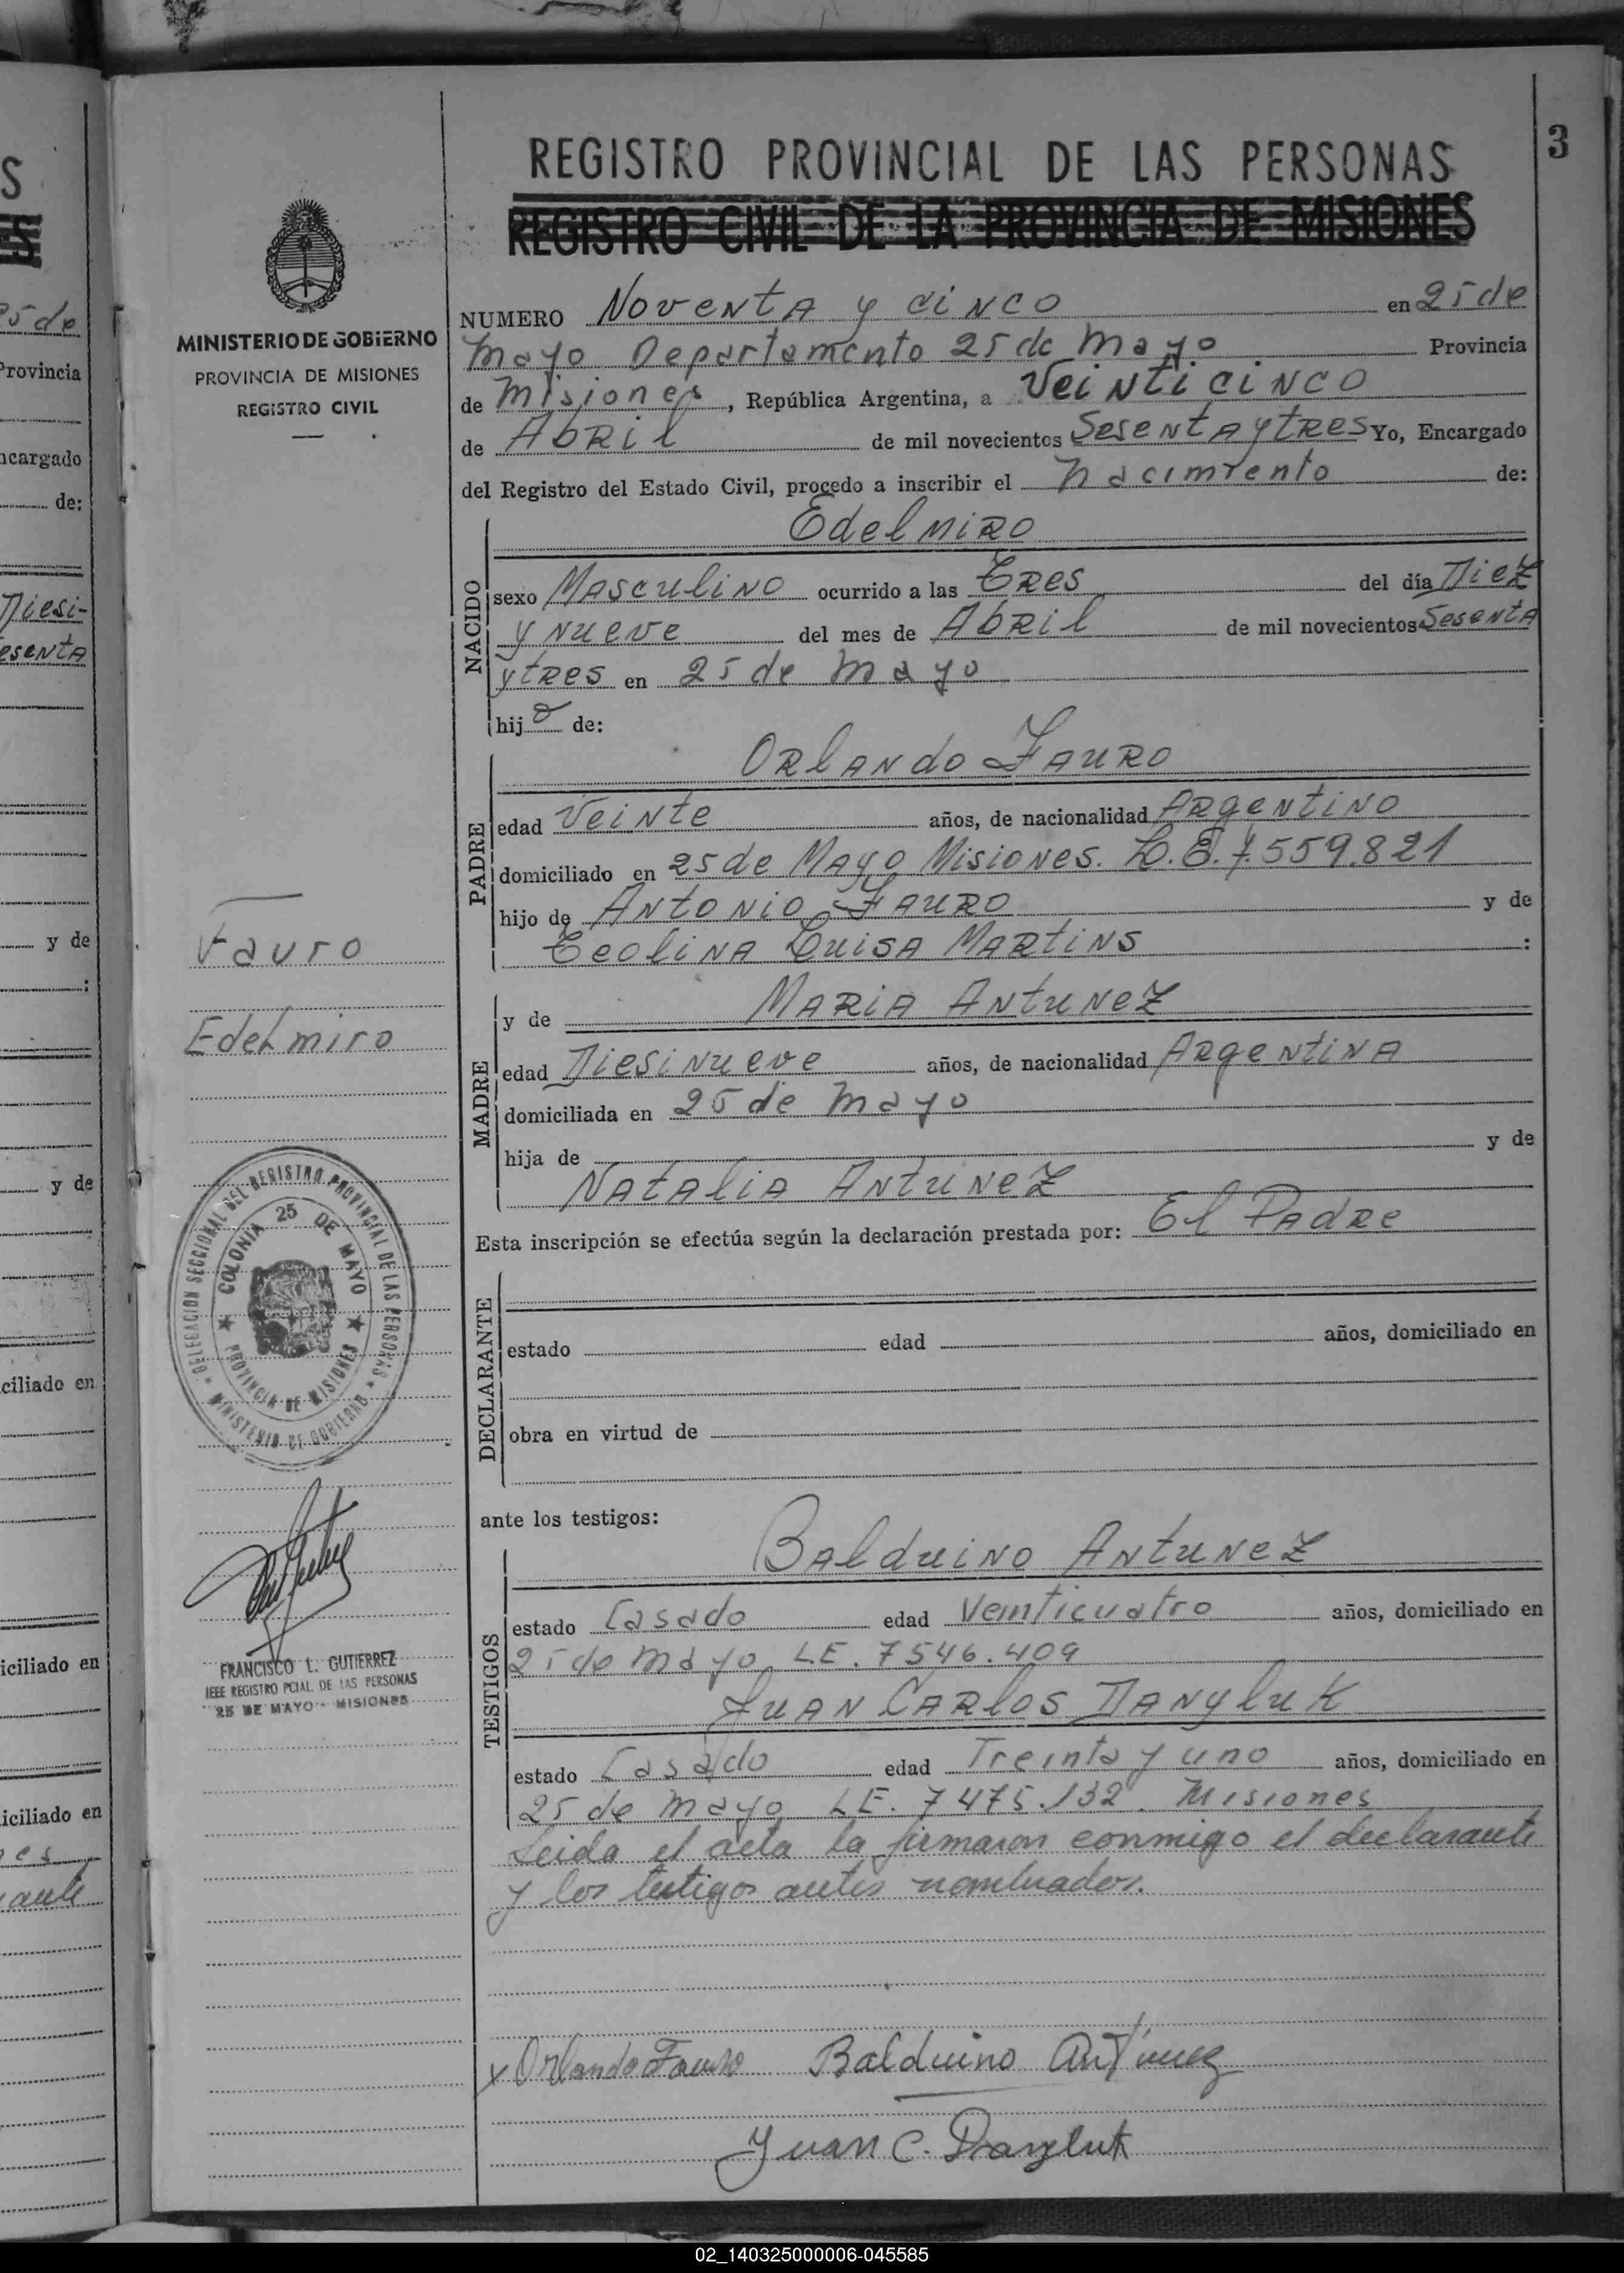 REGISTRO PROVINCIAL DE LAS PERSONAS
3
REGISTRO CIVIL DE LA PROVINCIA DE MISIONES
MINISTERIO DE GOBIERNO
PROVINCIA DE MISIONES
REGISTRO CIVIL
NUMERO Noventa y cinco en 25 de
mayo Departamento 25 de mayo Provincia
de Misiones, República Argentina, a Veinticinco
de Abril de mil novecientos Sesenta y tres Yo, Encargado
del Registro del Estado Civil, procedo a inscribir el nacimiento de:
NACIDO
Edelmiro
sexo Masculino ocurrido a las Tres del día Diez
y nueve del mes de Abril de mil novecientos Sesenta
y tres en 25 de mayo
hijo de:
PADRE
Orlando Fauro
edad Veinte años, de nacionalidad Argentino
domiciliado en 25 de Mayo Misiones. L.E. 7.559.821
hijo de Antonio Fauro y de
Teolina Luisa Martins :
Fauro
Edelmiro
MADRE
y de Maria Antunez
edad Diesinueve años, de nacionalidad Argentina
domiciliada en 25 de mayo
hija de y de
Natalia Antunez
Esta inscripción se efectúa según la declaración prestada por: El Padre
DELEGACION SECCIONAL DEL REGISTRO PROVINCIAL DE LAS PERSONAS
COLONIA 25 DE MAYO
PROVINCIA DE MISIONES
MINISTERIO DE GOBIERNO
DECLARANTE
estado edad años, domiciliado en
obra en virtud de
ante los testigos:
TESTIGOS
Balduino Antunez
estado Casado edad Veinticuatro años, domiciliado en
25 de mayo L.E. 7546.409
Juan Carlos Danyluk
estado Casado edad Treinta y uno años, domiciliado en
25 de mayo L.E. 7475.132. Misiones
Leida el acta la firmaron conmigo el declarante
y los testigos antes nombrados.
FRANCISCO L. GUTIERREZ
JEFE REGISTRO PCIAL. DE LAS PERSONAS
25 DE MAYO - MISIONES
x Orlando Fauro Balduino Antunez
Juan C. Danyluk
02_140325000006-045585